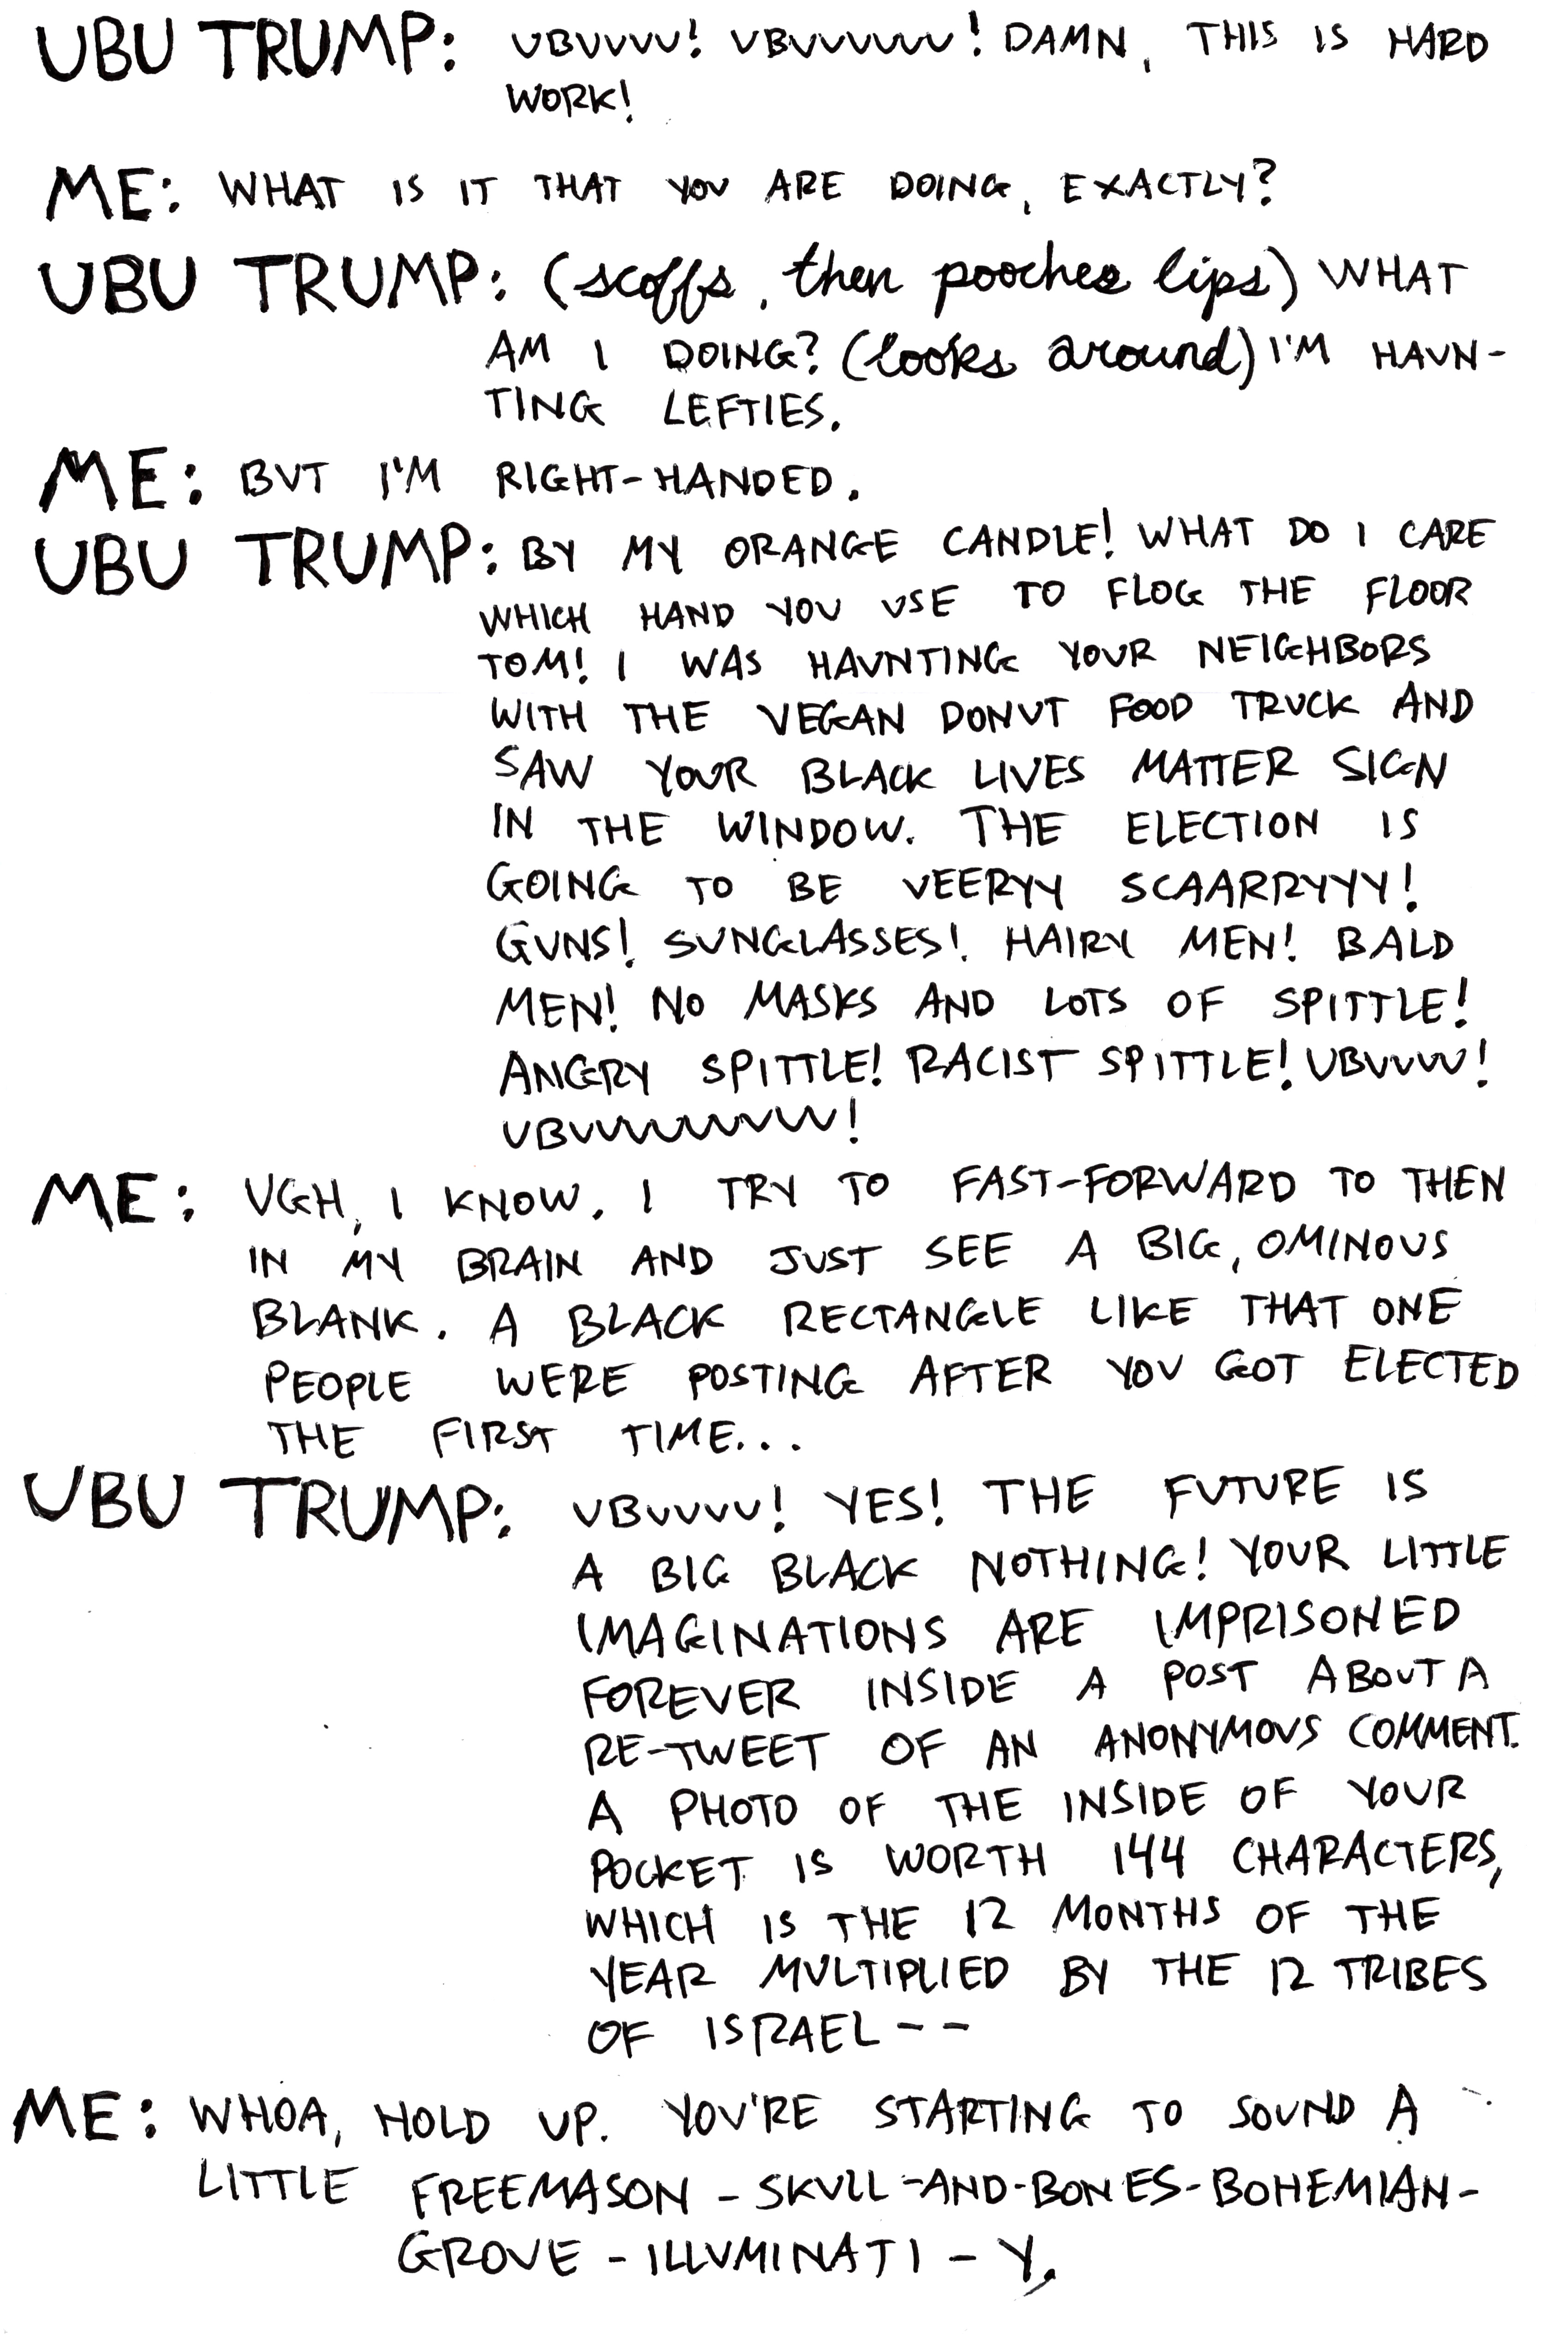 UBU TRUMP: UBUUUU! UBUUUUUU! DAMN, THIS IS HARD
WORK!
ME: WHAT IS IT THAT YOU ARE DOING, EXACTLY?
UBU TRUMP: (scoffs, then pooches lips) WHAT
AM I DOING? (looks around) I'M HAUN-
TING LEFTIES.
ME: BUT I'M RIGHT-HANDED.
UBU TRUMP: BY MY ORANGE CANDLE! WHAT DO I CARE
WHICH HAND YOU USE TO FLOG THE FLOOR
TOM! I WAS HAUNTING YOUR NEIGHBORS
WITH THE VEGAN DONUT FOOD TRUCK AND
SAW YOUR BLACK LIVES MATTER SIGN
IN THE WINDOW. THE ELECTION IS
GOING TO BE VEERYY SCAARRYYY!
GUNS! SUNGLASSES! HAIRY MEN! BALD
MEN! NO MASKS AND LOTS OF SPITTLE!
ANGRY SPITTLE! RACIST SPITTLE! UBUUUU!
UBUUUUUUUUU!
ME: UGH, I KNOW. I TRY TO FAST-FORWARD TO THEN
IN MY BRAIN AND JUST SEE A BIG, OMINOUS
BLANK. A BLACK RECTANGLE LIKE THAT ONE
PEOPLE WERE POSTING AFTER YOU GOT ELECTED
THE FIRST TIME...
UBU TRUMP: UBUUUU! YES! THE FUTURE IS
A BIG BLACK NOTHING! YOUR LITTLE
IMAGINATIONS ARE IMPRISONED
FOREVER INSIDE A POST ABOUT A
RE-TWEET OF AN ANONYMOUS COMMENT.
A PHOTO OF THE INSIDE OF YOUR
POCKET IS WORTH 144 CHARACTERS,
WHICH IS THE 12 MONTHS OF THE
YEAR MULTIPLIED BY THE 12 TRIBES
OF ISRAEL--
ME: WHOA, HOLD UP. YOU'RE STARTING TO SOUND A
LITTLE FREEMASON-SKULL-AND-BONES-BOHEMIAN-
GROVE-ILLUMINATI-Y.